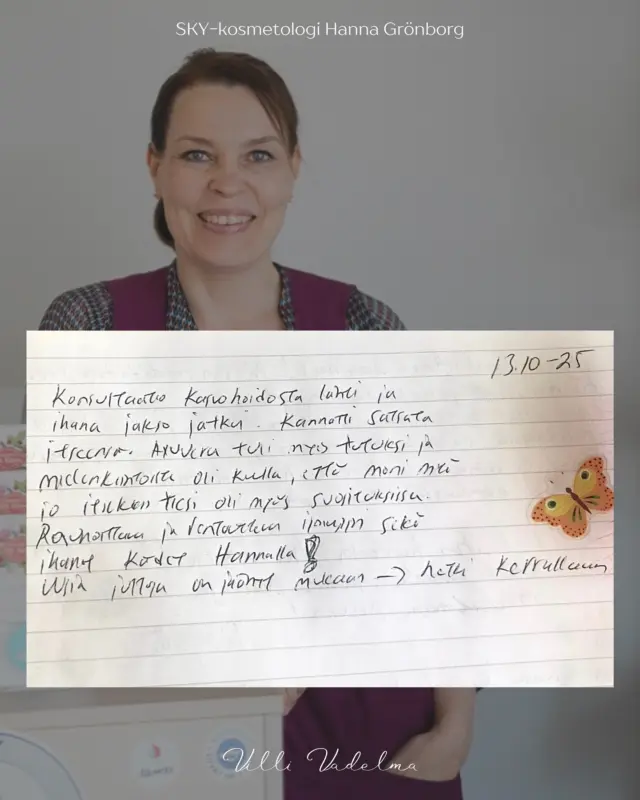 SKY-kosmetologi Hanna Grönborg
13.10-25
Konsultaatio kasvohoidosta lähti ja
ihana jakso jatkui. Kannatti satsata
itseensä. Ayuveda tuli myös tutuksi ja
mielenkiintoista oli kuulla, että moni mitä
jo itsekin tiesi oli myös suosituksissa.
Rauhoittava ja rentouttava ilmapiiri sekä
ihanat kädet Hannalla!
Uusia juttuja on jäänyt mukaan → hetki kerrallaan
Villi Vadelma